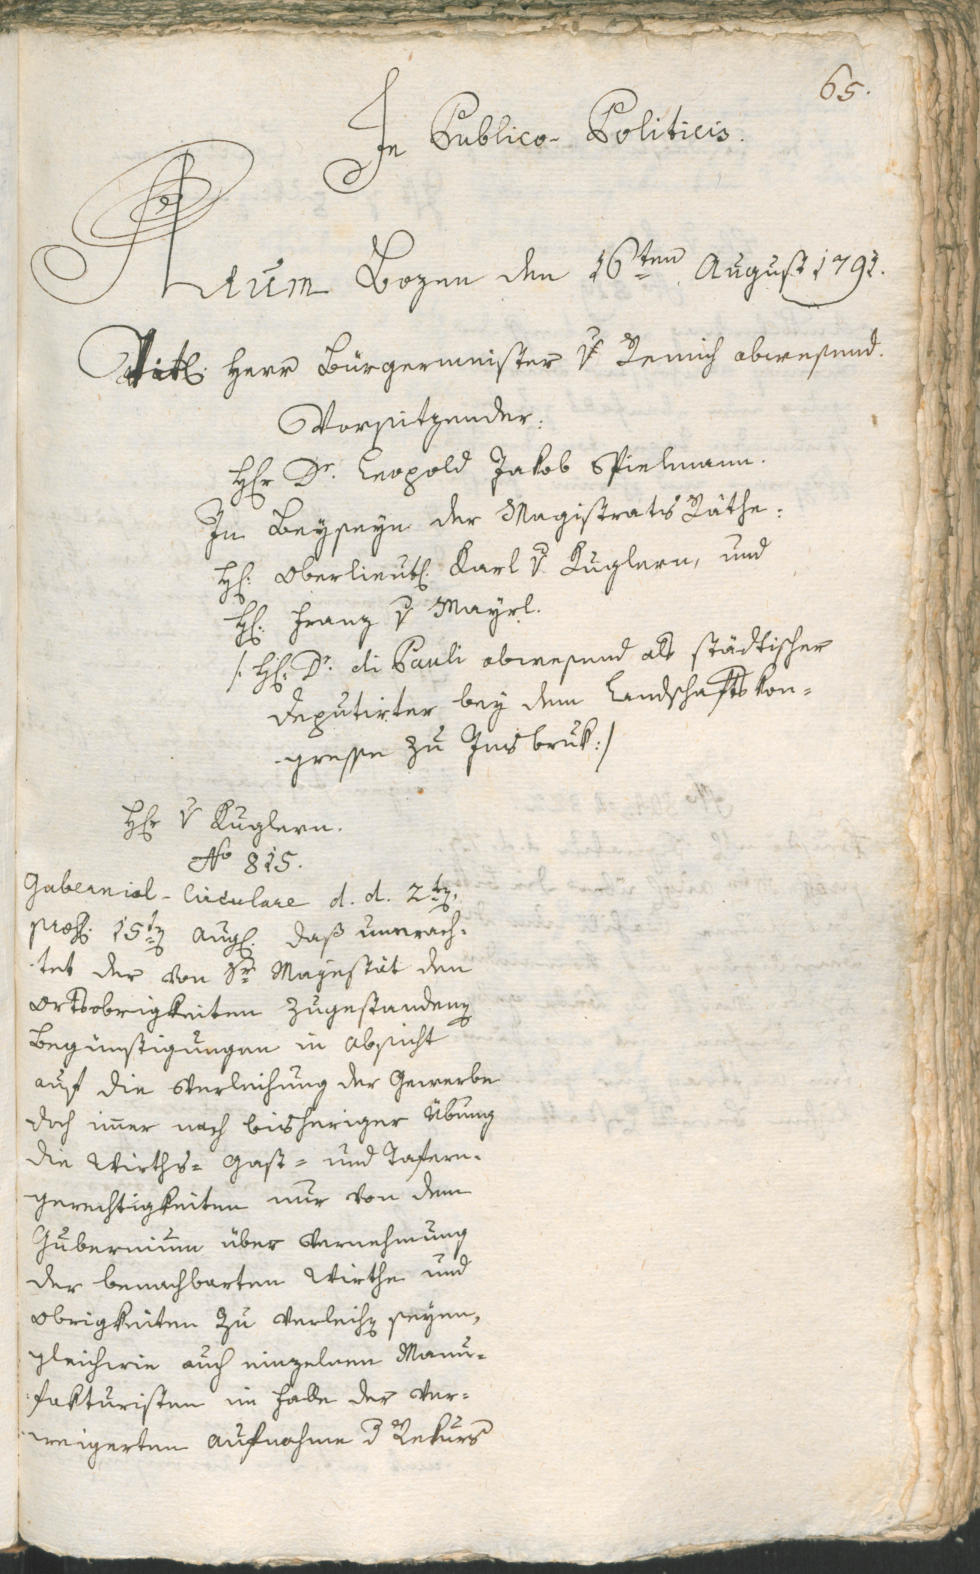 65.
In Publico-Politicis.
Actum Bozen den 16ten August 1791.
Titl. Herr Bürgermeister v Remich abwesend.
Vorsitzender:
Hr Dr. Leopold Jakob Spielmann.
In Beyseyn der Magistrats Räthe:
H: Oberlieut. Karl v Kuglern, und
H: Franz v Mayrl.
/: H: Dr. di Pauli abwesend als städtischer
Deputirter bey dem Landschaftskon-
gresse zu Insbruk :/
Hr v Kuglern.
No 815.
Gubernial-Circulare d. d. 2ten
praes. 15ten Aug. daß unerach-
tet der von Sr Majestät den
Ortsobrigkeiten zugestanden
Begünstigungen in Absicht
auf die Verleihung der Gewerbe
doch immer nach bisheriger Übung
die Wirths- Gast- und Tafern-
gerechtigkeiten nur von dem
Gubernium über Vernehmung
der benachbarten Wirthe und
Obrigkeiten zu verleihen seyen,
gleichwie auch einzelnen Manu-
fakturisten im Falle der ver-
weigerten Aufnahme d Rekurs